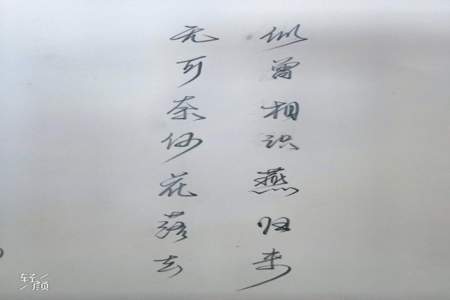 无可奈何花落去
似曾相识燕归来
轻颜